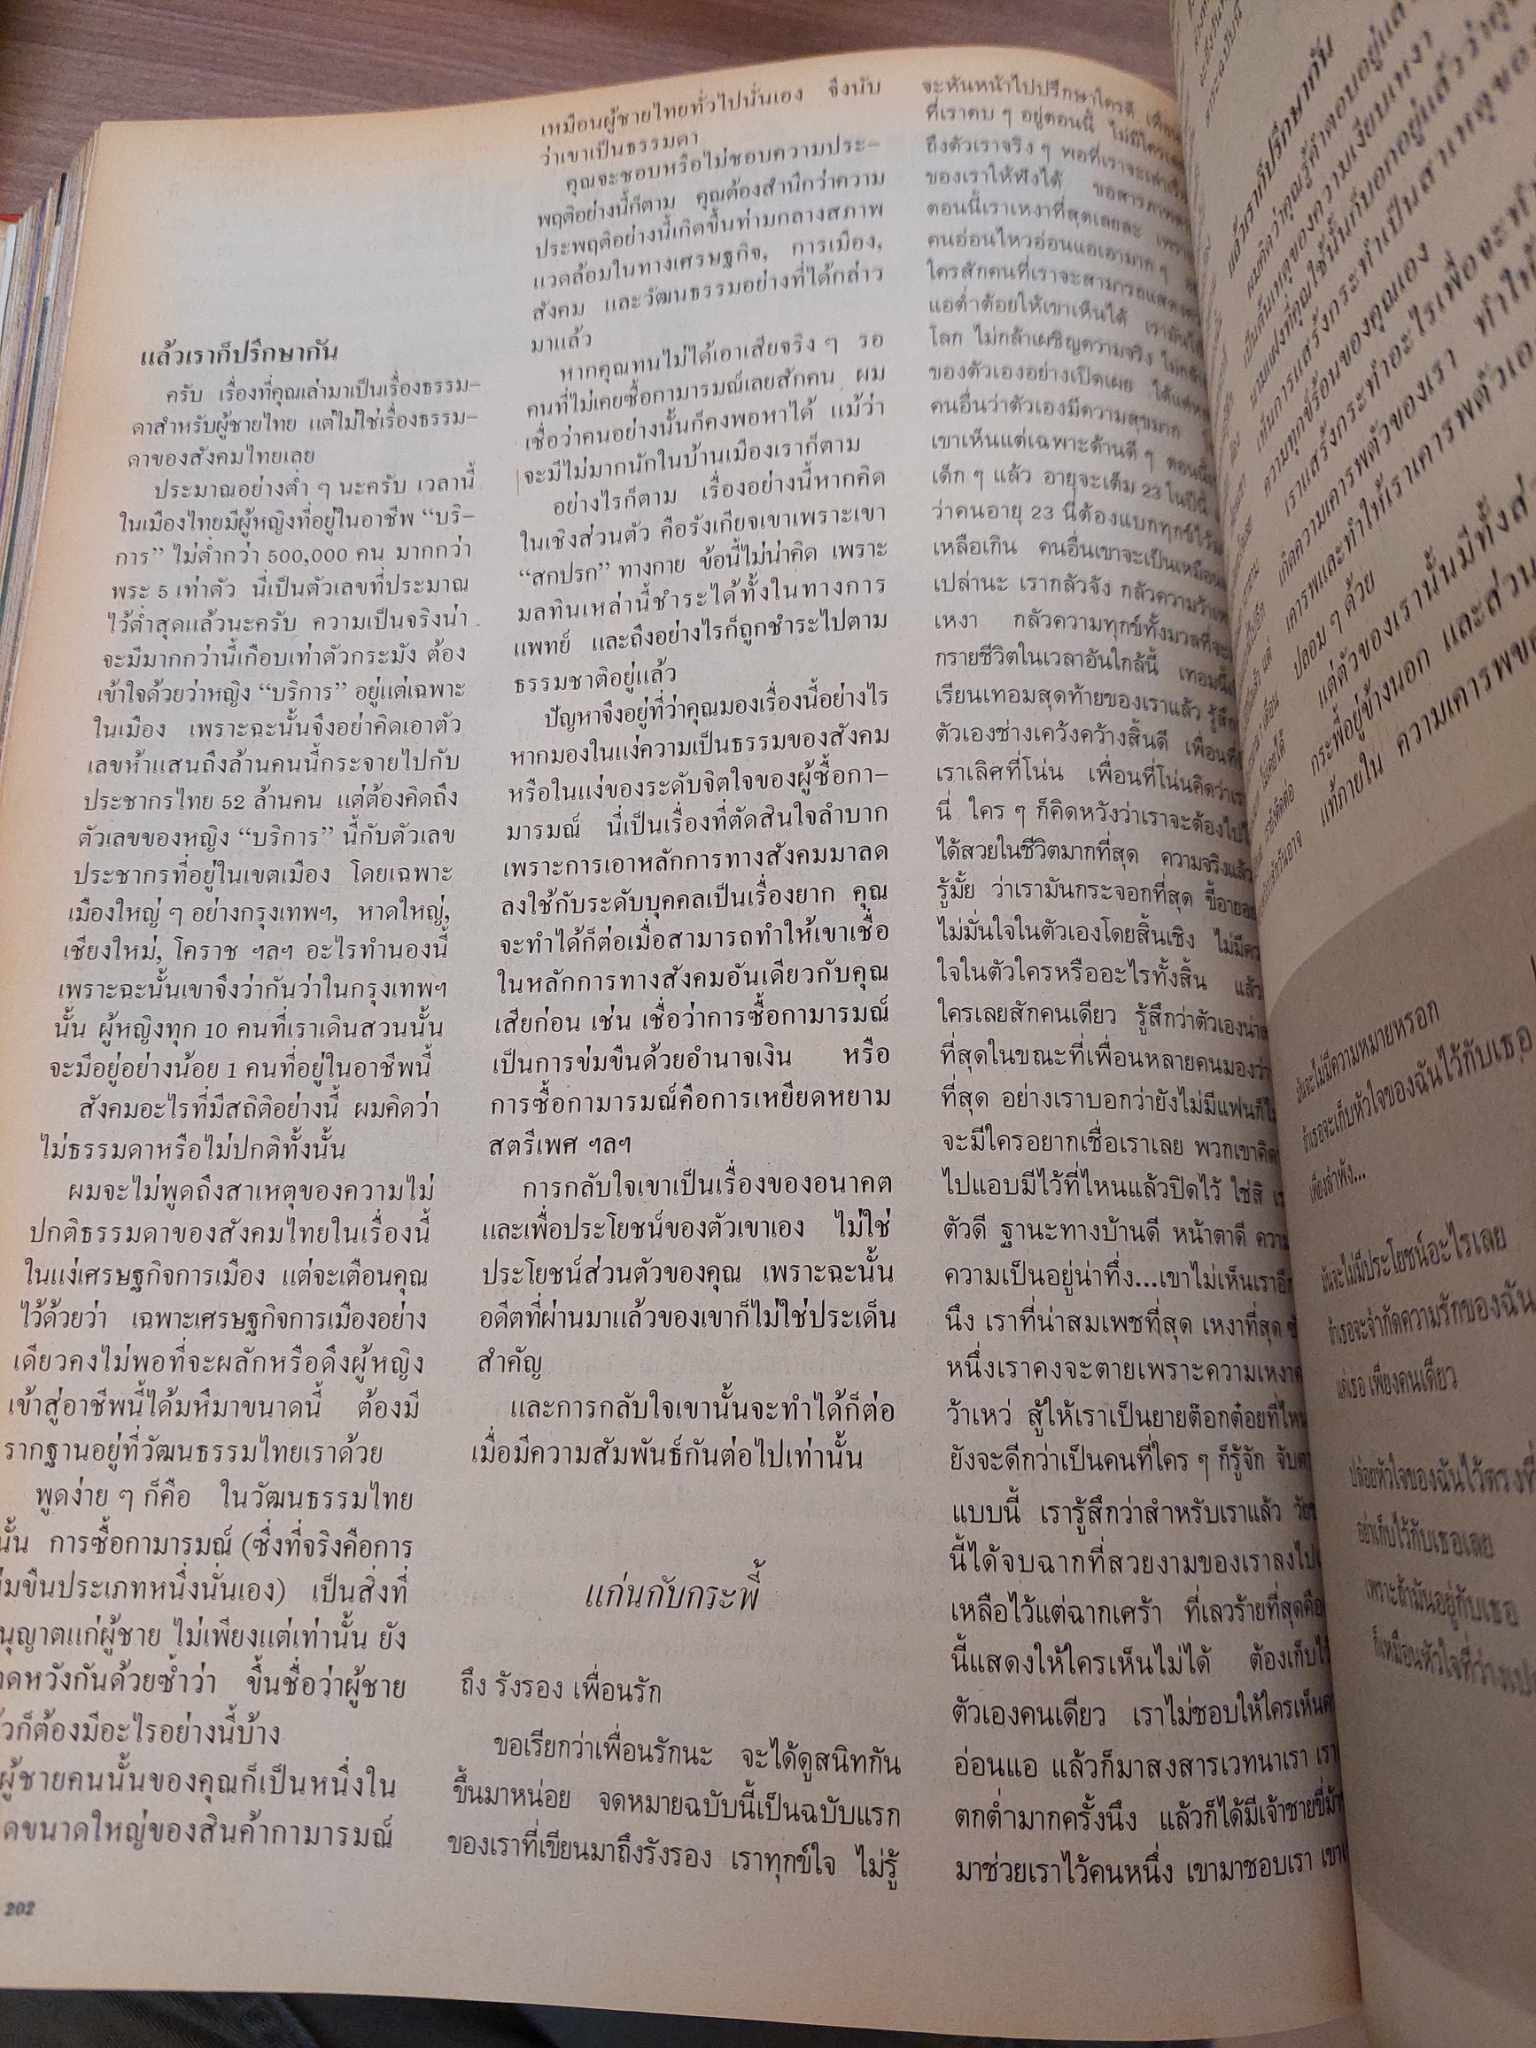 แล้วเราก็ปรึกษากัน
ครับ เรื่องที่คุณเล่ามาเป็นเรื่องธรรม-
ดาสำหรับผู้ชายไทย แต่ไม่ใช่เรื่องธรรม-
ดาของสังคมไทยเลย
ประมาณอย่างต่ำ ๆ นะครับ เวลานี้
ในเมืองไทยมีผู้หญิงที่อยู่ในอาชีพ “บริ-
การ” ไม่ต่ำกว่า 500,000 คน มากกว่า
พระ 5 เท่าตัว นี่เป็นตัวเลขที่ประมาณ
ไว้ต่ำสุดแล้วนะครับ ความเป็นจริงน่า
จะมีมากกว่านี้เกือบเท่าตัวกระมัง ต้อง
เข้าใจด้วยว่าหญิง “บริการ” อยู่แต่เฉพาะ
ในเมือง เพราะฉะนั้นจึงอย่าคิดเอาตัว
เลขห้าแสนถึงล้านคนนี้กระจายไปกับ
ประชากรไทย 52 ล้านคน แต่ต้องคิดถึง
ตัวเลขของหญิง “บริการ” นี้กับตัวเลข
ประชากรที่อยู่ในเขตเมือง โดยเฉพาะ
เมืองใหญ่ ๆ อย่างกรุงเทพฯ, หาดใหญ่,
เชียงใหม่, โคราช ฯลฯ อะไรทำนองนี้
เพราะฉะนั้นเขาจึงว่ากันว่าในกรุงเทพฯ
นั้น ผู้หญิงทุก 10 คนที่เราเดินสวนนั้น
จะมีอยู่อย่างน้อย 1 คนที่อยู่ในอาชีพนี้
สังคมอะไรที่มีสถิติอย่างนี้ ผมคิดว่า
ไม่ธรรมดาหรือไม่ปกติทั้งนั้น
ผมจะไม่พูดถึงสาเหตุของความไม่
ปกติธรรมดาของสังคมไทยในเรื่องนี้
ในแง่เศรษฐกิจการเมือง แต่จะเตือนคุณ
ไว้ด้วยว่า เฉพาะเศรษฐกิจการเมืองอย่าง
เดียวคงไม่พอที่จะผลักหรือดึงผู้หญิง
เข้าสู่อาชีพนี้ได้มหึมาขนาดนี้ ต้องมี
รากฐานอยู่ที่วัฒนธรรมไทยเราด้วย
พูดง่าย ๆ ก็คือ ในวัฒนธรรมไทย
นั้น การซื้อกามารมณ์ (ซึ่งที่จริงคือการ
ข่มขืนประเภทหนึ่งนั่นเอง) เป็นสิ่งที่
นุญาตแก่ผู้ชาย ไม่เพียงแต่เท่านั้น ยัง
าดหวังกันด้วยซ้ำว่า ขึ้นชื่อว่าผู้ชาย
ัวก็ต้องมีอะไรอย่างนี้บ้าง
ผู้ชายคนนั้นของคุณก็เป็นหนึ่งใน
ดขนาดใหญ่ของสินค้ากามารมณ์
202
เหมือนผู้ชายไทยทั่วไปนั่นเอง จึงนับ
ว่าเขาเป็นธรรมดา
คุณจะชอบหรือไม่ชอบความประ-
พฤติอย่างนี้ก็ตาม คุณต้องสำนึกว่าความ
ประพฤติอย่างนี้เกิดขึ้นท่ามกลางสภาพ
แวดล้อมในทางเศรษฐกิจ, การเมือง,
สังคม และวัฒนธรรมอย่างที่ได้กล่าว
มาแล้ว
หากคุณทนไม่ได้เอาเสียจริง ๆ รอ
คนที่ไม่เคยซื้อกามารมณ์เลยสักคน ผม
เชื่อว่าคนอย่างนั้นก็คงพอหาได้ แม้ว่า
จะมีไม่มากนักในบ้านเมืองเราก็ตาม
อย่างไรก็ตาม เรื่องอย่างนี้หากคิด
ในเชิงส่วนตัว คือรังเกียจเขาเพราะเขา
“สกปรก” ทางกาย ข้อนี้ไม่น่าคิด เพราะ
มลทินเหล่านี้ชำระได้ทั้งในทางการ
แพทย์ และถึงอย่างไรก็ถูกชำระไปตาม
ธรรมชาติอยู่แล้ว
ปัญหาจึงอยู่ที่ว่าคุณมองเรื่องนี้อย่างไร
หากมองในแง่ความเป็นธรรมของสังคม
หรือในแง่ของระดับจิตใจของผู้ซื้อกา-
มารมณ์ นี่เป็นเรื่องที่ตัดสินใจลำบาก
เพราะการเอาหลักการทางสังคมมาลด
ลงใช้กับระดับบุคคลเป็นเรื่องยาก คุณ
จะทำได้ก็ต่อเมื่อสามารถทำให้เขาเชื่อ
ในหลักการทางสังคมอันเดียวกับคุณ
เสียก่อน เช่น เชื่อว่าการซื้อกามารมณ์
เป็นการข่มขืนด้วยอำนาจเงิน หรือ
การซื้อกามารมณ์คือการเหยียดหยาม
สตรีเพศ ฯลฯ
การกลับใจเขาเป็นเรื่องของอนาคต
และเพื่อประโยชน์ของตัวเขาเอง ไม่ใช่
ประโยชน์ส่วนตัวของคุณ เพราะฉะนั้น
อดีตที่ผ่านมาแล้วของเขาก็ไม่ใช่ประเด็น
สำคัญ
และการกลับใจเขานั้นจะทำได้ก็ต่อ
เมื่อมีความสัมพันธ์กันต่อไปเท่านั้น
แก่นกับกระพี้
ถึง รังรอง เพื่อนรัก
ขอเรียกว่าเพื่อนรักนะ จะได้ดูสนิทกัน
ขึ้นมาหน่อย จดหมายฉบับนี้เป็นฉบับแรก
ของเราที่เขียนมาถึงรังรอง เราทุกข์ใจ ไม่รู้
จะหันหน้าไปปรึกษาใครดี
ที่เราคบ ๆ อยู่ตอนนี้
ถึงตัวเราจริง ๆ พอที่เราจะเล่า
ของเราให้ฟังได้ ขอสารภาพ
ตอนนี้เราเหงาที่สุดเลยละ
คนอ่อนไหวอ่อนแอเอามาก ๆ
ใครสักคนที่เราจะสามารถแสดง
แอต่ำต้อยให้เขาเห็นได้
โลก ไม่กล้าเผชิญความจริง
ของตัวเองอย่างเปิดเผย
คนอื่นว่าตัวเองมีความสุขมาก
เขาเห็นแต่เฉพาะด้านดี ๆ ตอนนี้
เด็ก ๆ แล้ว อายุจะเต็ม 23 ในปีนี้
ว่าคนอายุ 23 นี่ต้องแบกทุกข์ไว้
เหลือเกิน คนอื่นเขาจะเป็นเหมือน
เปล่านะ เรากลัวจัง กลัวความว้า
เหงา กลัวความทุกข์ทั้งมวลที่จะ
กรายชีวิตในเวลาอันใกล้นี้ เทอมนี้
เรียนเทอมสุดท้ายของเราแล้ว รู้สึก
ตัวเองช่างเคว้งคว้างสิ้นดี เพื่อนที่
เราเลิศที่โน่น เพื่อนที่โน่นคิดว่า
นี่ ใคร ๆ ก็คิดหวังว่าเราจะต้องไป
ได้สวยในชีวิตมากที่สุด ความจริงแล้ว
รู้มั้ย ว่าเรามันกระจอกที่สุด ขี้อาย
ไม่มั่นใจในตัวเองโดยสิ้นเชิง ไม่มี
ใจในตัวใครหรืออะไรทั้งสิ้น แล้ว
ใครเลยสักคนเดียว รู้สึกว่าตัวเอง
ที่สุดในขณะที่เพื่อนหลายคนมองว่า
ที่สุด อย่างเราบอกว่ายังไม่มีแฟนก็
จะมีใครอยากเชื่อเราเลย พวกเขาคิด
ไปแอบมีไว้ที่ไหนแล้วปิดไว้ ใช่สิ
ตัวดี ฐานะทางบ้านดี หน้าตาดี
ความเป็นอยู่น่าทึ่ง...เขาไม่เห็นเรา
นึง เราที่น่าสมเพชที่สุด เหงาที่สุด
หนึ่งเราคงจะตายเพราะความเหงา
ว้าเหว่ สู้ให้เราเป็นยายต๊อกต๋อยที่ไหน
ยังจะดีกว่าเป็นคนที่ใคร ๆ ก็รู้จัก
แบบนี้ เรารู้สึกว่าสำหรับเราแล้ว
นี้ได้จบฉากที่สวยงามของเราลงไป
เหลือไว้แต่ฉากเศร้า ที่เลวร้ายที่สุดคือ
นี้แสดงให้ใครเห็นไม่ได้ ต้องเก็บ
ตัวเองคนเดียว เราไม่ชอบให้ใครเห็น
อ่อนแอ แล้วก็มาสงสารเวทนาเรา
ตกต่ำมากครั้งนึง แล้วก็ได้มีเจ้าชายขี่ม้า
มาช่วยเราไว้คนหนึ่ง เขามาชอบเรา
แล้วเราก็ปรึกษากัน
ผมคิดว่าคุณรู้คำตอบอยู่
เป็นต้นเหตุของความเงียบเหงา
นามแฝงที่คุณใช้นั้นก็บอกอยู่แล้วว่า
เห็นการแสร้งกระทำเป็นสาเหตุของ
ความทุกข์ร้อนของคุณเอง
เราแสร้งกระทำอะไรเพื่อจะ
เกิดความเคารพตัวของเรา ทำให้
เคารพและทำให้เราเคารพตัวเอง
ปลอม ๆ ด้วย
แต่ตัวของเรานั้นมีทั้ง
กระพี้อยู่ข้างนอก และส่วน
แท้ภายใน ความเคารพ
มันจะไม่มีความหมายหรอก
ถ้าเธอจะเก็บหัวใจของฉันไว้กับเธอ
เพียงลำพัง...
มันจะไม่มีประโยชน์อะไรเลย
ถ้าเธอจะจำกัดความรักของฉัน
แค่เธอ เพียงคนเดียว
ปล่อยหัวใจของฉันไว้ตรงที่
อย่าเก็บไว้กับเธอเลย
เพราะถ้ามันอยู่กับเธอ
ก็เหมือนหัวใจที่ว่างเปล่า